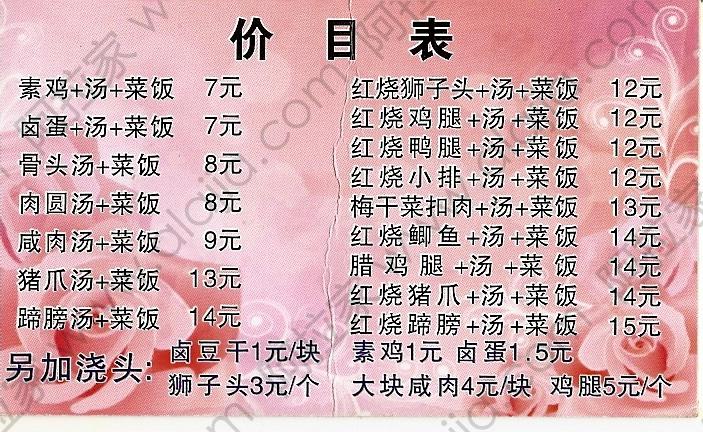 价目表
素鸡+汤+菜饭 7元
卤蛋+汤+菜饭 7元
骨头汤+菜饭 8元
肉圆汤+菜饭 8元
咸肉汤+菜饭 9元
猪爪汤+菜饭 13元
蹄膀汤+菜饭 14元
红烧狮子头+汤+菜饭 12元
红烧鸡腿+汤+菜饭 12元
红烧鸭腿+汤+菜饭 12元
红烧小排+汤+菜饭 12元
梅干菜扣肉+汤+菜饭 13元
红烧鲫鱼+汤+菜饭 14元
腊鸡腿+汤+菜饭 14元
红烧猪爪+汤+菜饭 14元
红烧蹄膀+汤+菜饭 15元
另加浇头:
卤豆干1元/块 素鸡1元 卤蛋1.5元
狮子头3元/个 大块咸肉4元/块 鸡腿5元/个